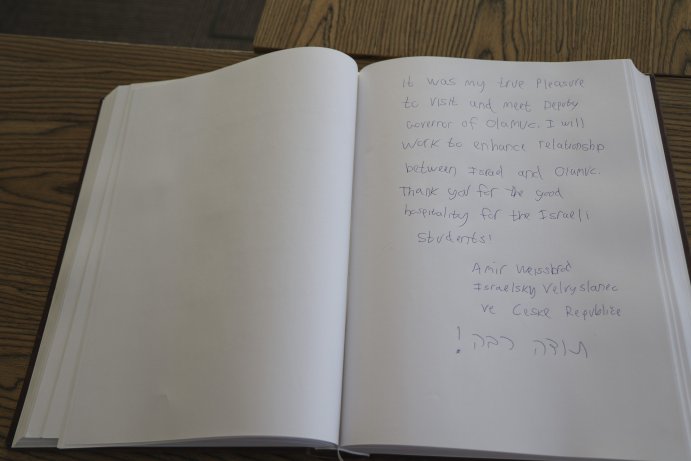 It was my true pleasure
to visit and meet Deputy
Governor of Olamuc. I will
work to enhance relationship
between Israel and Olumuc.
Thank you for the good
hospitality for the Israeli
students!
Amir Weissbrod
Israelsky Velvyslanec
ve Ceske Republice
תודה רבה!